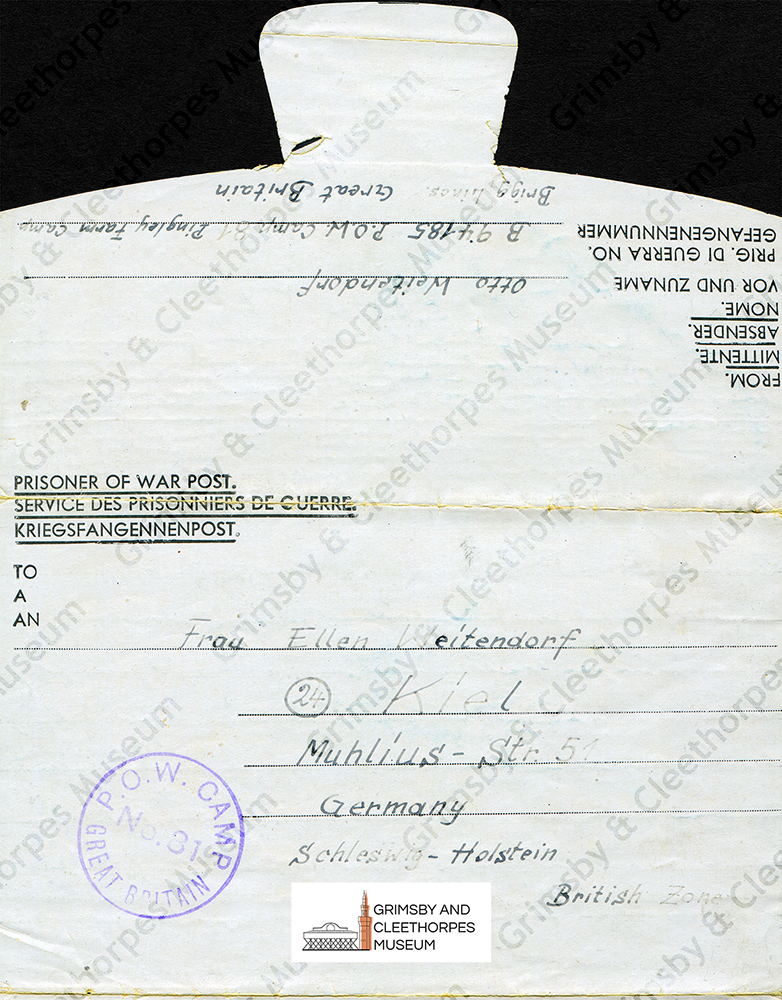 FROM.
MITTENTE.
ABSENDER.
NOME.
VOR UND ZUNAME Otto Weitendorf
PRIG. DI GUERRA NO.
GEFANGENENNUMMER B 94185 P.O.W Camp 81 Pingley Farm Camp.
Brigg Lincs. Great Britain
PRISONER OF WAR POST.
SERVICE DES PRISONNIERS DE GUERRE.
KRIEGSFANGENNENPOST.
TO
A
AN
Frau Ellen Weitendorf
24 Kiel
Muhlius-Str. 51
Germany
Schleswig-Holstein
British Zone
P.O.W. CAMP
No. 81
GREAT BRITAIN
GRIMSBY AND
CLEETHORPES
MUSEUM
Grimsby & Cleethorpes Museum